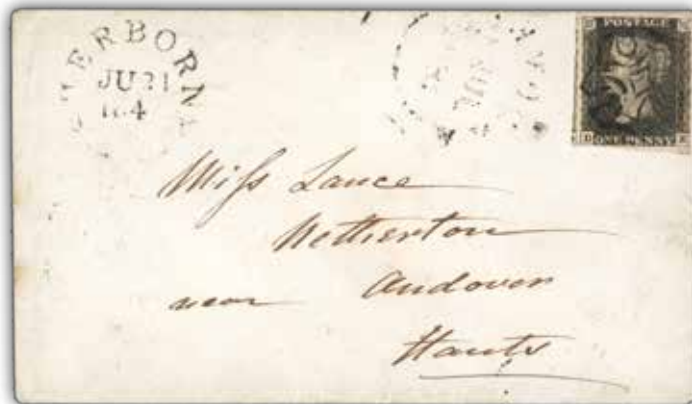 SHERBORNE
JU 21
184
POSTAGE
ONE PENNY
Miss Lance
Netherton
near Andover
Hants